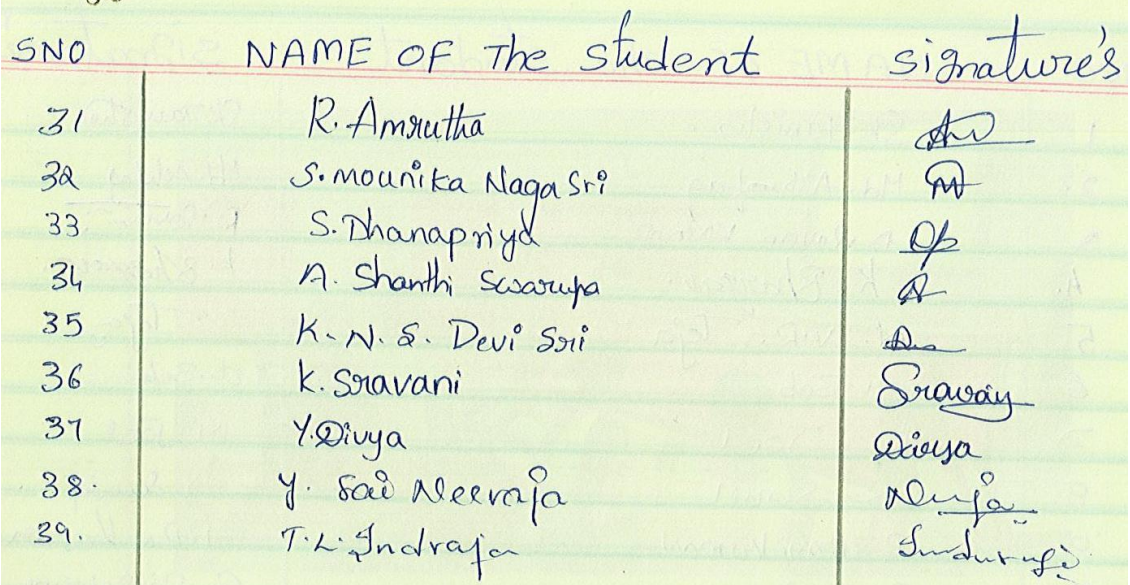 SNO NAME OF The Student Signature's
31 R. Amrutha
32 S. mounika Naga Sri
33 S. Dhanapriya Dp
34 A. Shanthi Swarupa
35 K. N. S. Devi Sri
36 K Sravani Sravani
37 Y. Divya Divya
38. Y. Sai Neeraja
39. T. L. Indraja